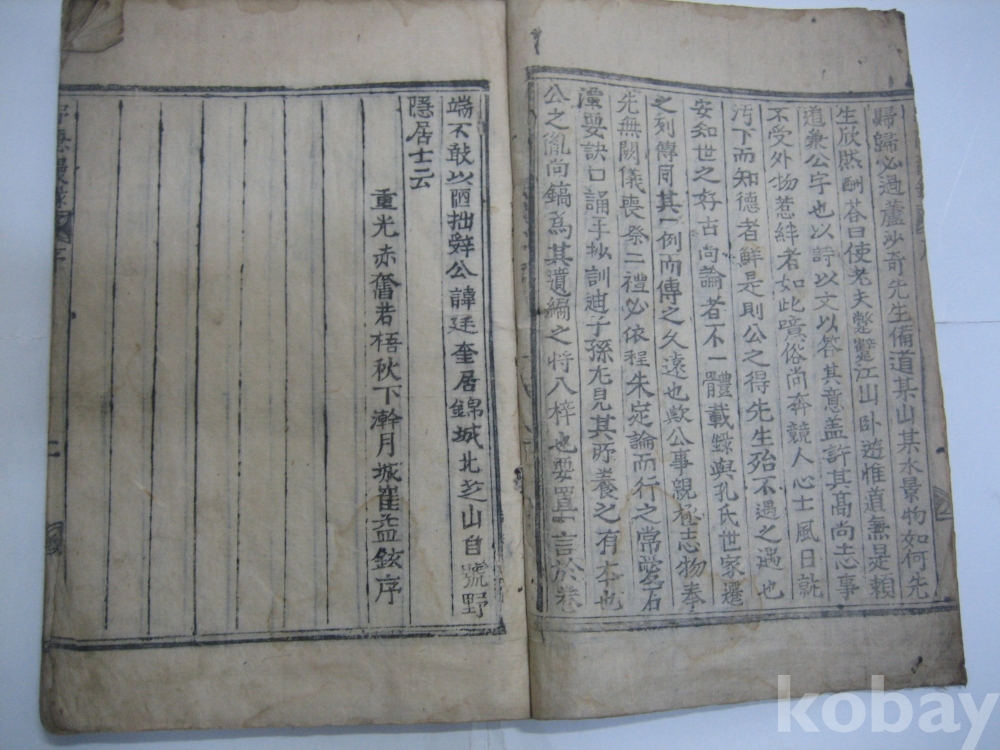 歸歸必過蘆沙奇先生備道某山某水景物如何先
生欣然酬答曰使老夫蹩躄江山卧遊惟道無是賴
道兼公字也以詩以文以答其意盖許其高尚志事
不受外物惹絆者如此噫俗尚奔競人心士風日就
汚下而知德者鮮是則公之得先生殆不遇之遇也
安知世之好古尚論者不一體載錄與孔氏世家遷
之列傳同其一例而傳之久遠也歟公事親極志物奉
先無闕儀喪祭二禮必依程朱定論而行之常愛石
潭要訣口誦手抄訓迪子孫尤見其所養之有本也
公之胤尚鎬爲其遺編之將入梓也要置一言於卷
端不敢以陋拙辞公諱廷奎居錦城北芝山自號野
隱居士云
重光赤奮若梧秋下澣月城崔益鉉序
二
kobay